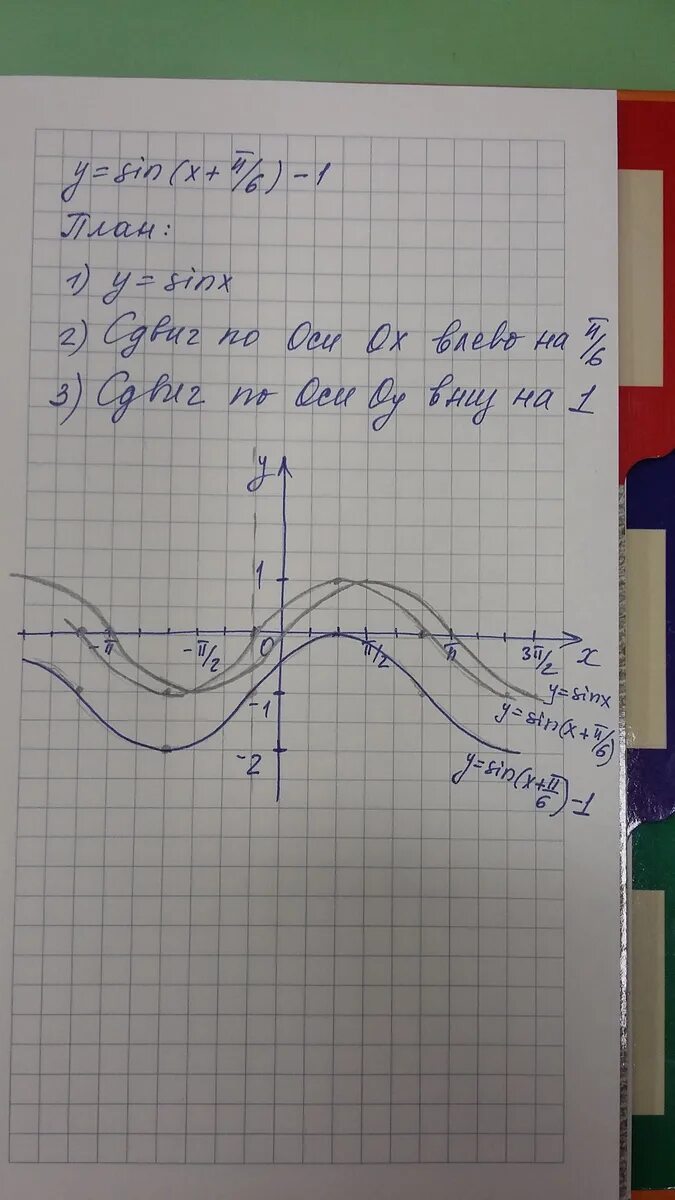 y=sin(x+π/6)-1
План:
1) y=sinx
2) Сдвиг по Оси Ox влево на π/6
3) Сдвиг по Оси Oy вниз на 1
y
1
-π
-π/2
0
π/2
π
3π/2
x
-1
-2
y=sinx
y=sin(x+π/6)
y=sin(x+π/6)-1